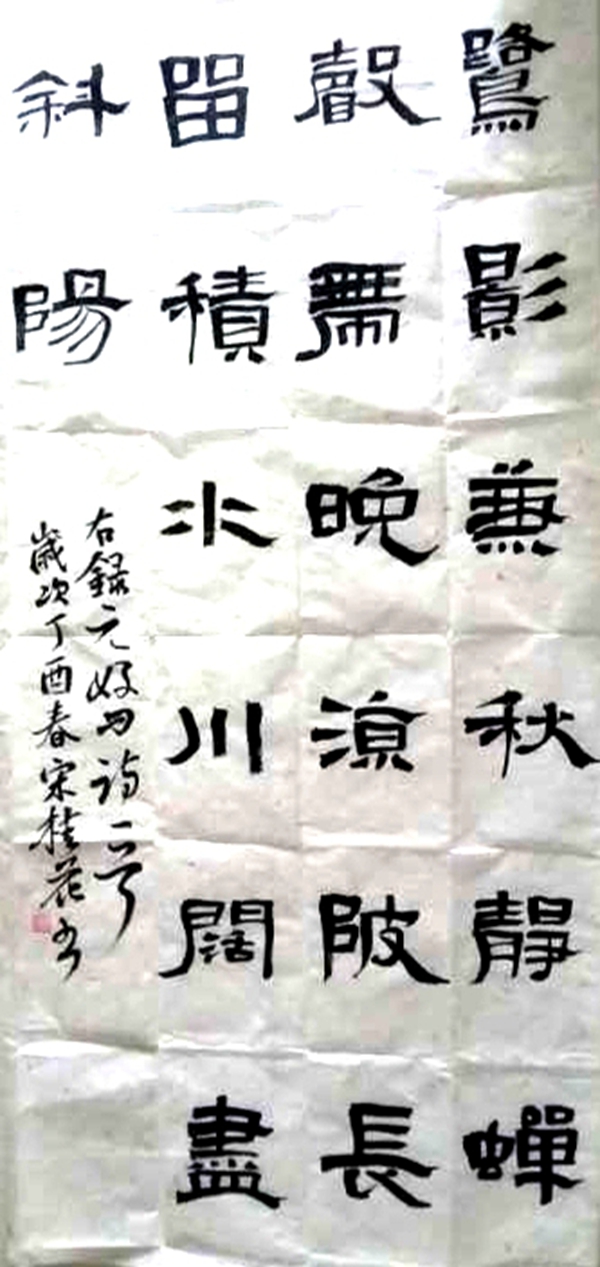 鷺影兼秋靜蟬
聲帶晚涼陂長
留積水川闊盡
斜陽
右錄元好问詩一首
歲次丁酉春宋桂花书